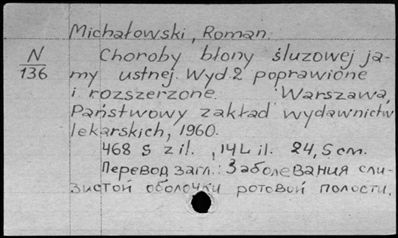 Michałowski, Roman.
N
136
Choroby błony śluzowej ja-
my ustnej. Wyd. 2 poprawione
i rozszerzone. Warszawa,
Państwowy zakład wydawnictw
lekarskich, 1960.
468 S z il., 14 L il. 24,5 cm.
Перевод загл.: Заболевания сли-
зистой оболочки ротовой полости.